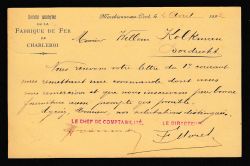 Société anonyme
DE LA
FABRIQUE DE FER
DE
CHARLEROI
Marchienne-au-Pont, le 2 Avril
Monsieur Willem Kolkman
Dordrecht
Nous recevons votre lettre du 1er courant
nous remettant une commande dont nous
vous remercions et que nous inscrivons par bonne
fourniture aussi prompte que possible.
Agréez, Monsieur, nos salutations distinguées.
LE CHEF DE COMPTABILITÉ,
LE DIRECTEUR